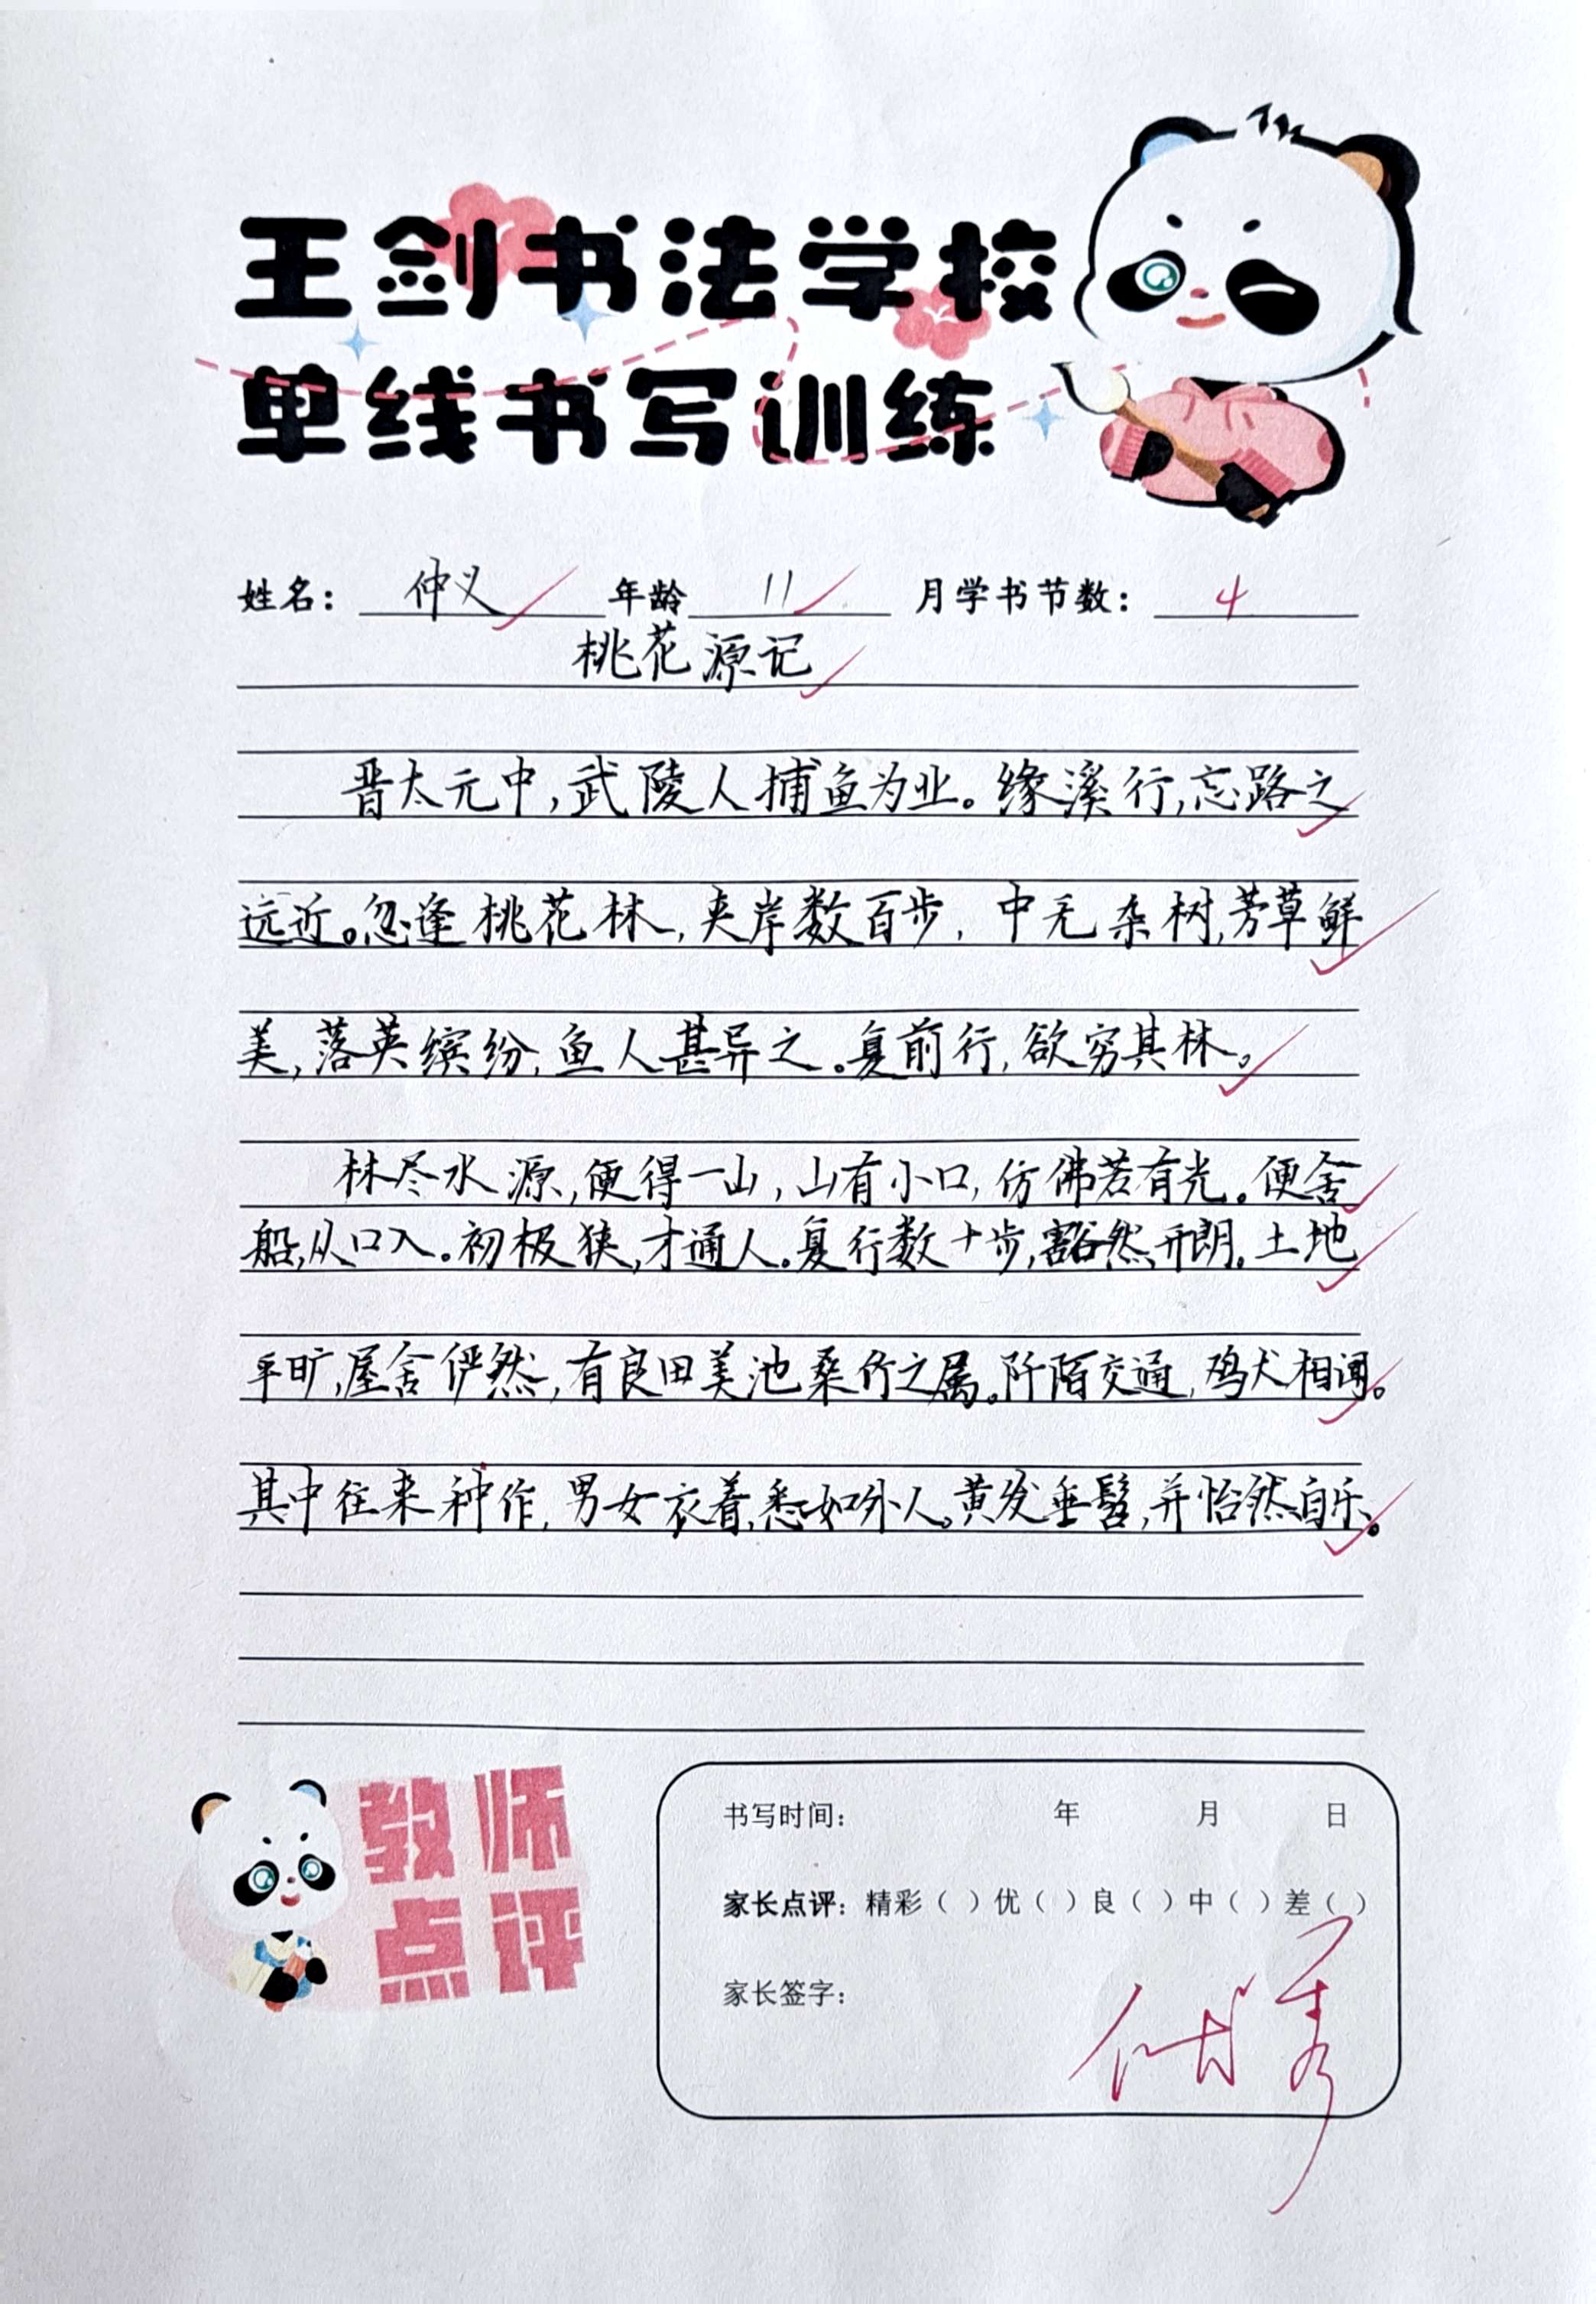 王剑书法学校
单线书写训练
姓名： 仲义 年龄 11 月学书节数： 4
桃花源记
晋太元中,武陵人捕鱼为业。缘溪行,忘路之
远近。忽逢桃花林,夹岸数百步,中无杂树,芳草鲜
美,落英缤纷,鱼人甚异之。复前行,欲穷其林。
林尽水源,便得一山,山有小口,仿佛若有光。便舍
船,从口入。初极狭,才通人。复行数十步,豁然开朗。土地
平旷,屋舍俨然,有良田美池桑竹之属。阡陌交通,鸡犬相闻。
其中往来种作,男女衣着,悉如外人。黄发垂髫,并怡然自乐。
教师
点评
书写时间： 年 月 日
家长点评：精彩（ ）优（ ）良（ ）中（ ）差（ ）
家长签字：